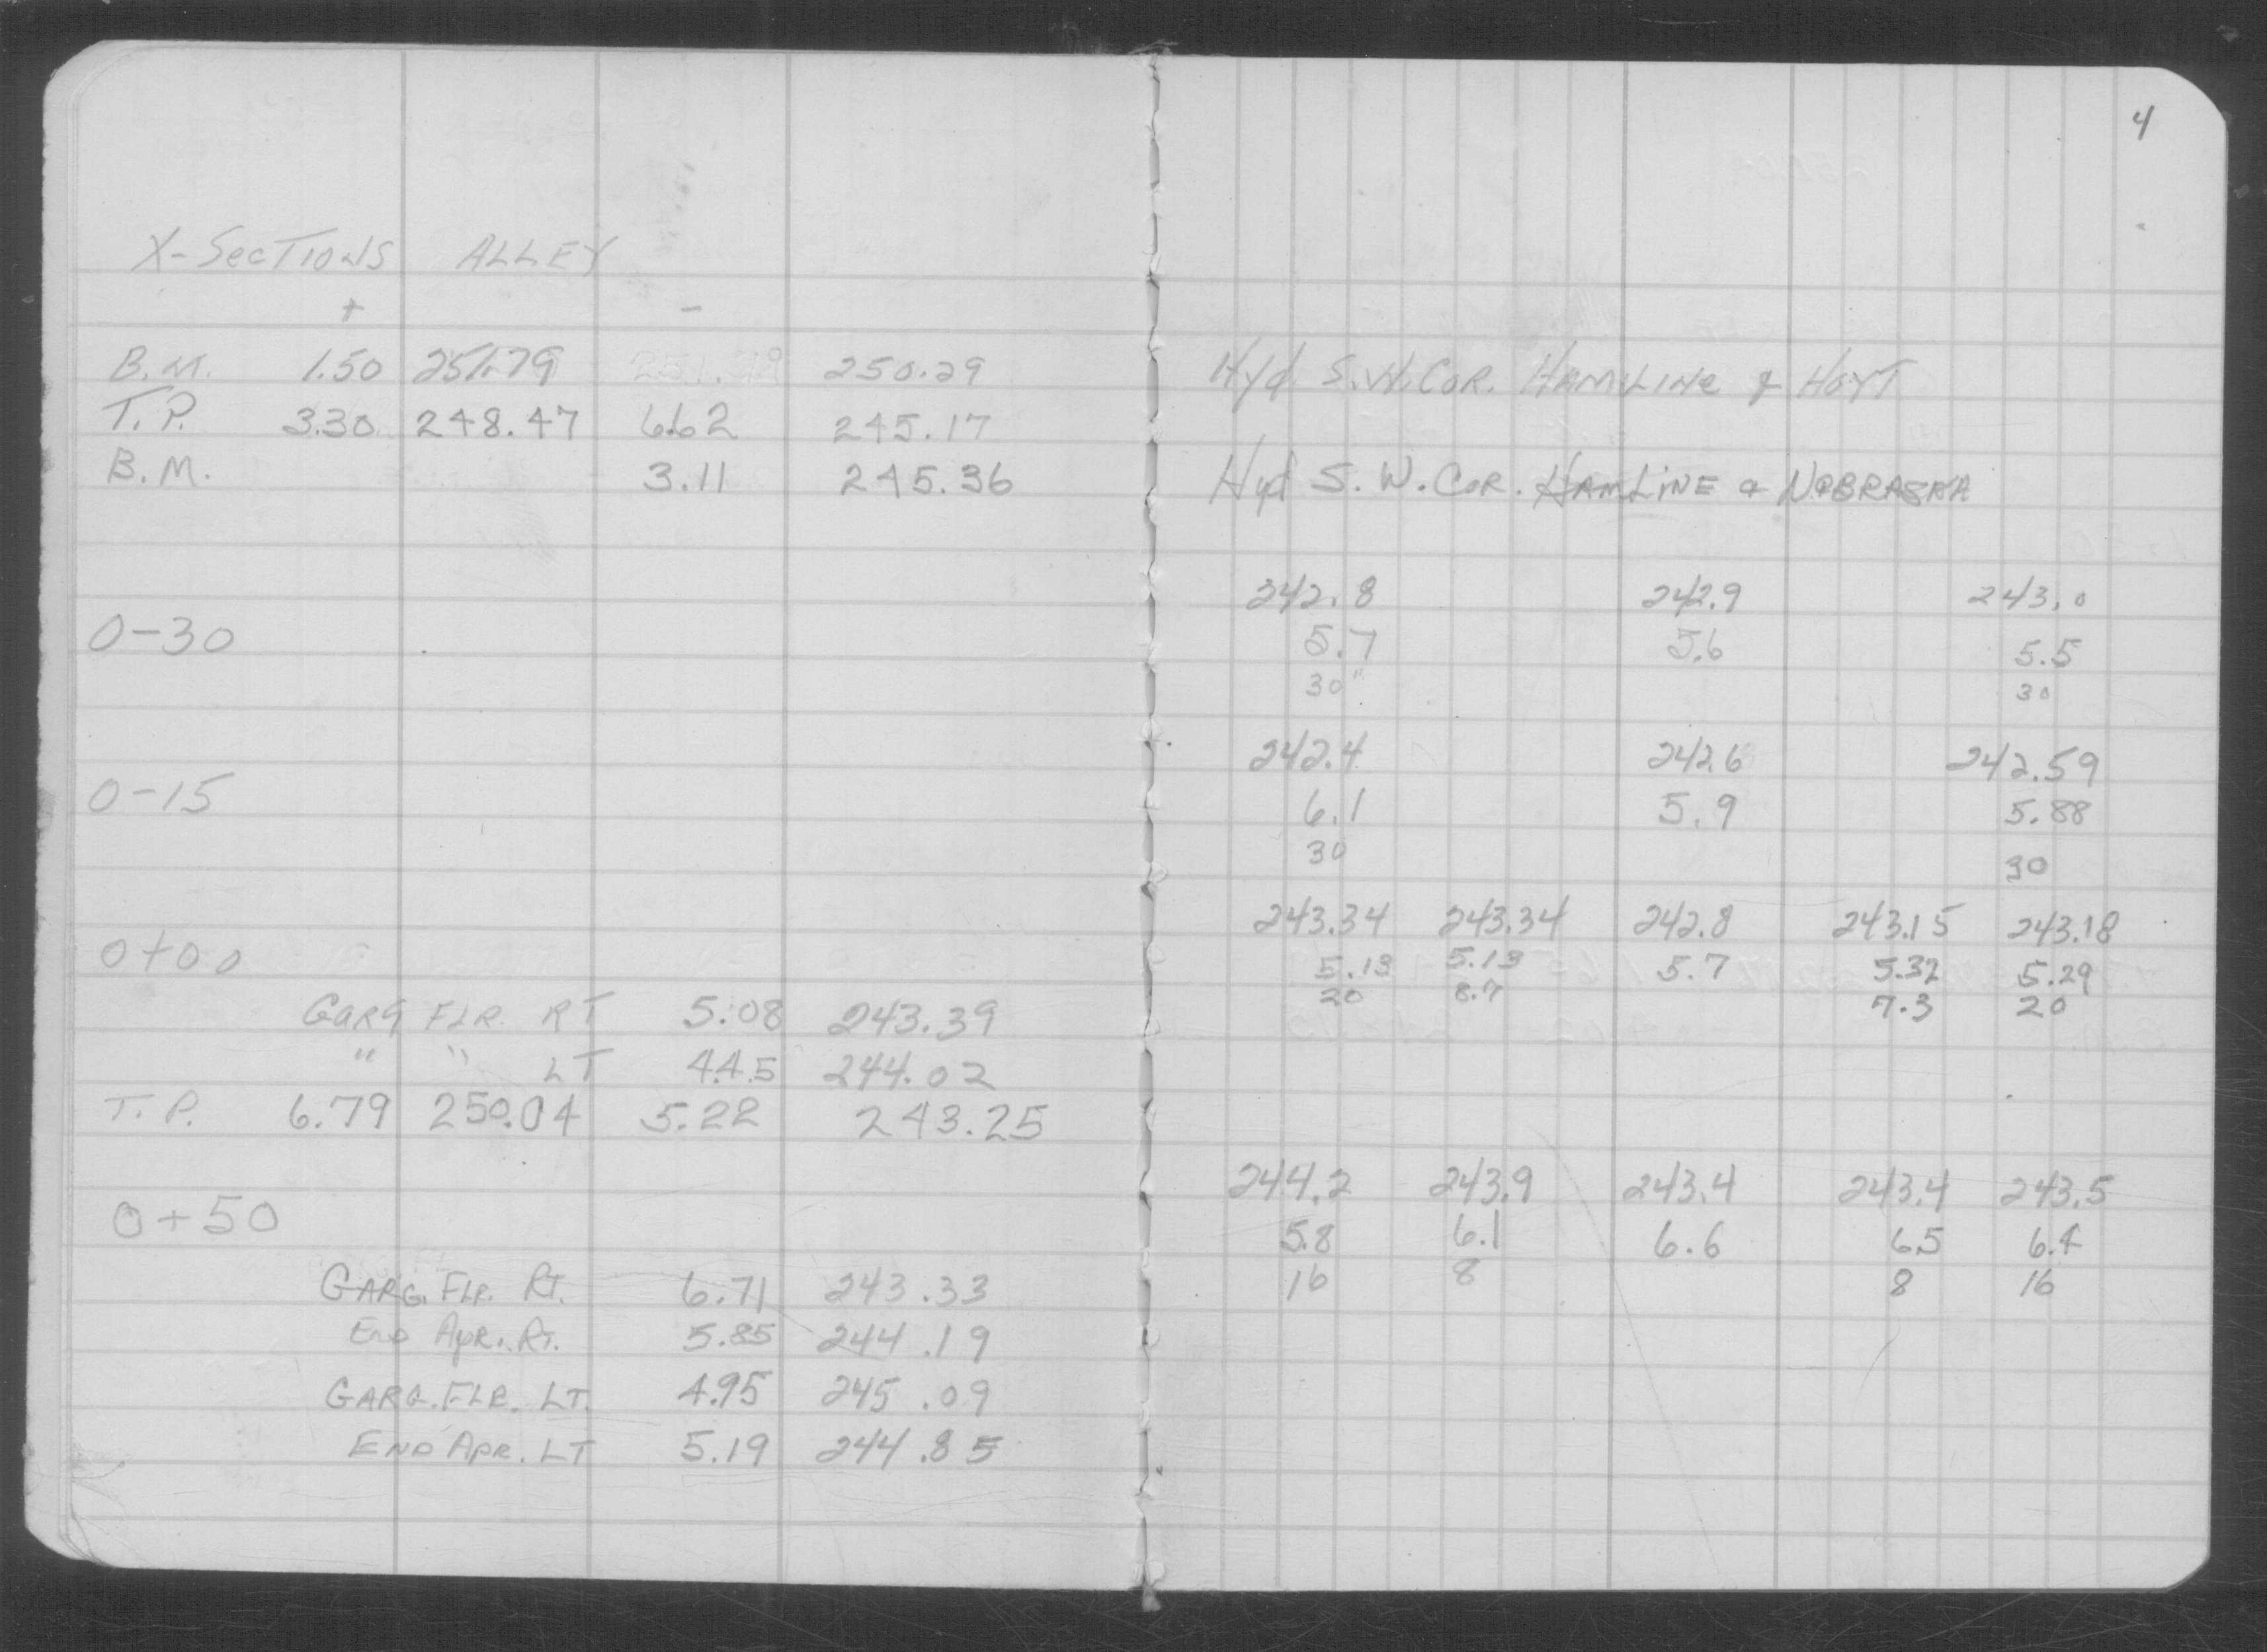 4
X-SECTIONS ALLEY
+ -
B.M. 1.50 251.79 250.29 Hyd S.W. COR. HAMLINE & HOYT
T.P. 3.30 248.47 6.62 245.17
B.M. 3.11 245.36 Hyd S. W. COR. HAMLINE & NEBRASKA
242.8 242.9 243.0
0-30 5.7 5.6 5.5
30 30
242.4 242.6 242.59
0-15 6.1 5.9 5.88
30 30
243.34 243.34 242.8 243.15 243.18
0+00 5.13 5.13 5.7 5.32 5.29
20 8.7 7.3 20
GARG FLR. RT 5.08 243.39
" " LT 4.45 244.02
T.P. 6.79 250.04 5.22 243.25
244.2 243.9 243.4 243.4 243.5
0+50 5.8 6.1 6.6 6.5 6.4
16 8 8 16
GARG. FLR. RT. 6.71 243.33
END APR. RT. 5.85 244.19
GARG. FLR. LT. 4.95 245.09
END APR. LT 5.19 244.85